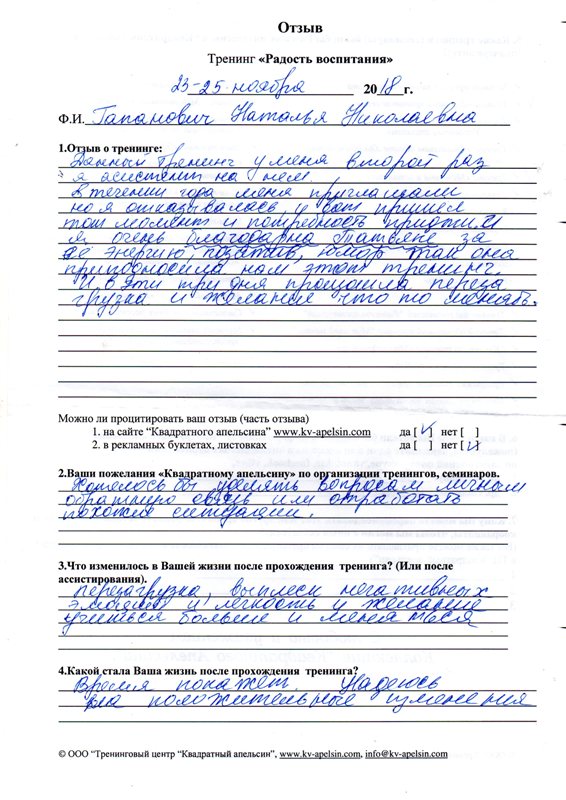 Отзыв
Тренинг «Радость воспитания»
23-25 ноября 2018г.
Ф.И. Гапанович Наталья Николаевна
1.Отзыв о тренинге:
Данный тренинг у меня второй раз
я асистент на нем
В течении года меня приглашали
но я отказывалась и вот пришел
тот момент и потребность прийти. И
я очень благодарна Татьяне за
её энергию, позитив, юмор так она
приподносила нам этот тренинг.
И в эти три дня прошла переза
грузка и желание что то менять.
Можно ли процитировать ваш отзыв (часть отзыва)
1. на сайте “Квадратного апельсина” www.kv-apelsin.com да [V] нет [ ]
2. в рекламных буклетах, листовках да [ ] нет [V]
2.Ваши пожелания «Квадратному апельсину» по организации тренингов, семинаров.
Хотелось бы уделять вопросам личным
обратную связь или отработать
похожие ситуации.
3.Что изменилось в Вашей жизни после прохождения тренинга? (Или после
ассистирования).
перезагрузка, выплеск негативных
эмоций и легкость и желание
учиться больше и меняться
4.Какой стала Ваша жизнь после прохождения тренинга?
Время покажет. Надеюсь
на положительные изменения
© ООО “Тренинговый центр “Квадратный апельсин”, www.kv-apelsin.com, info@kv-apelsin.com